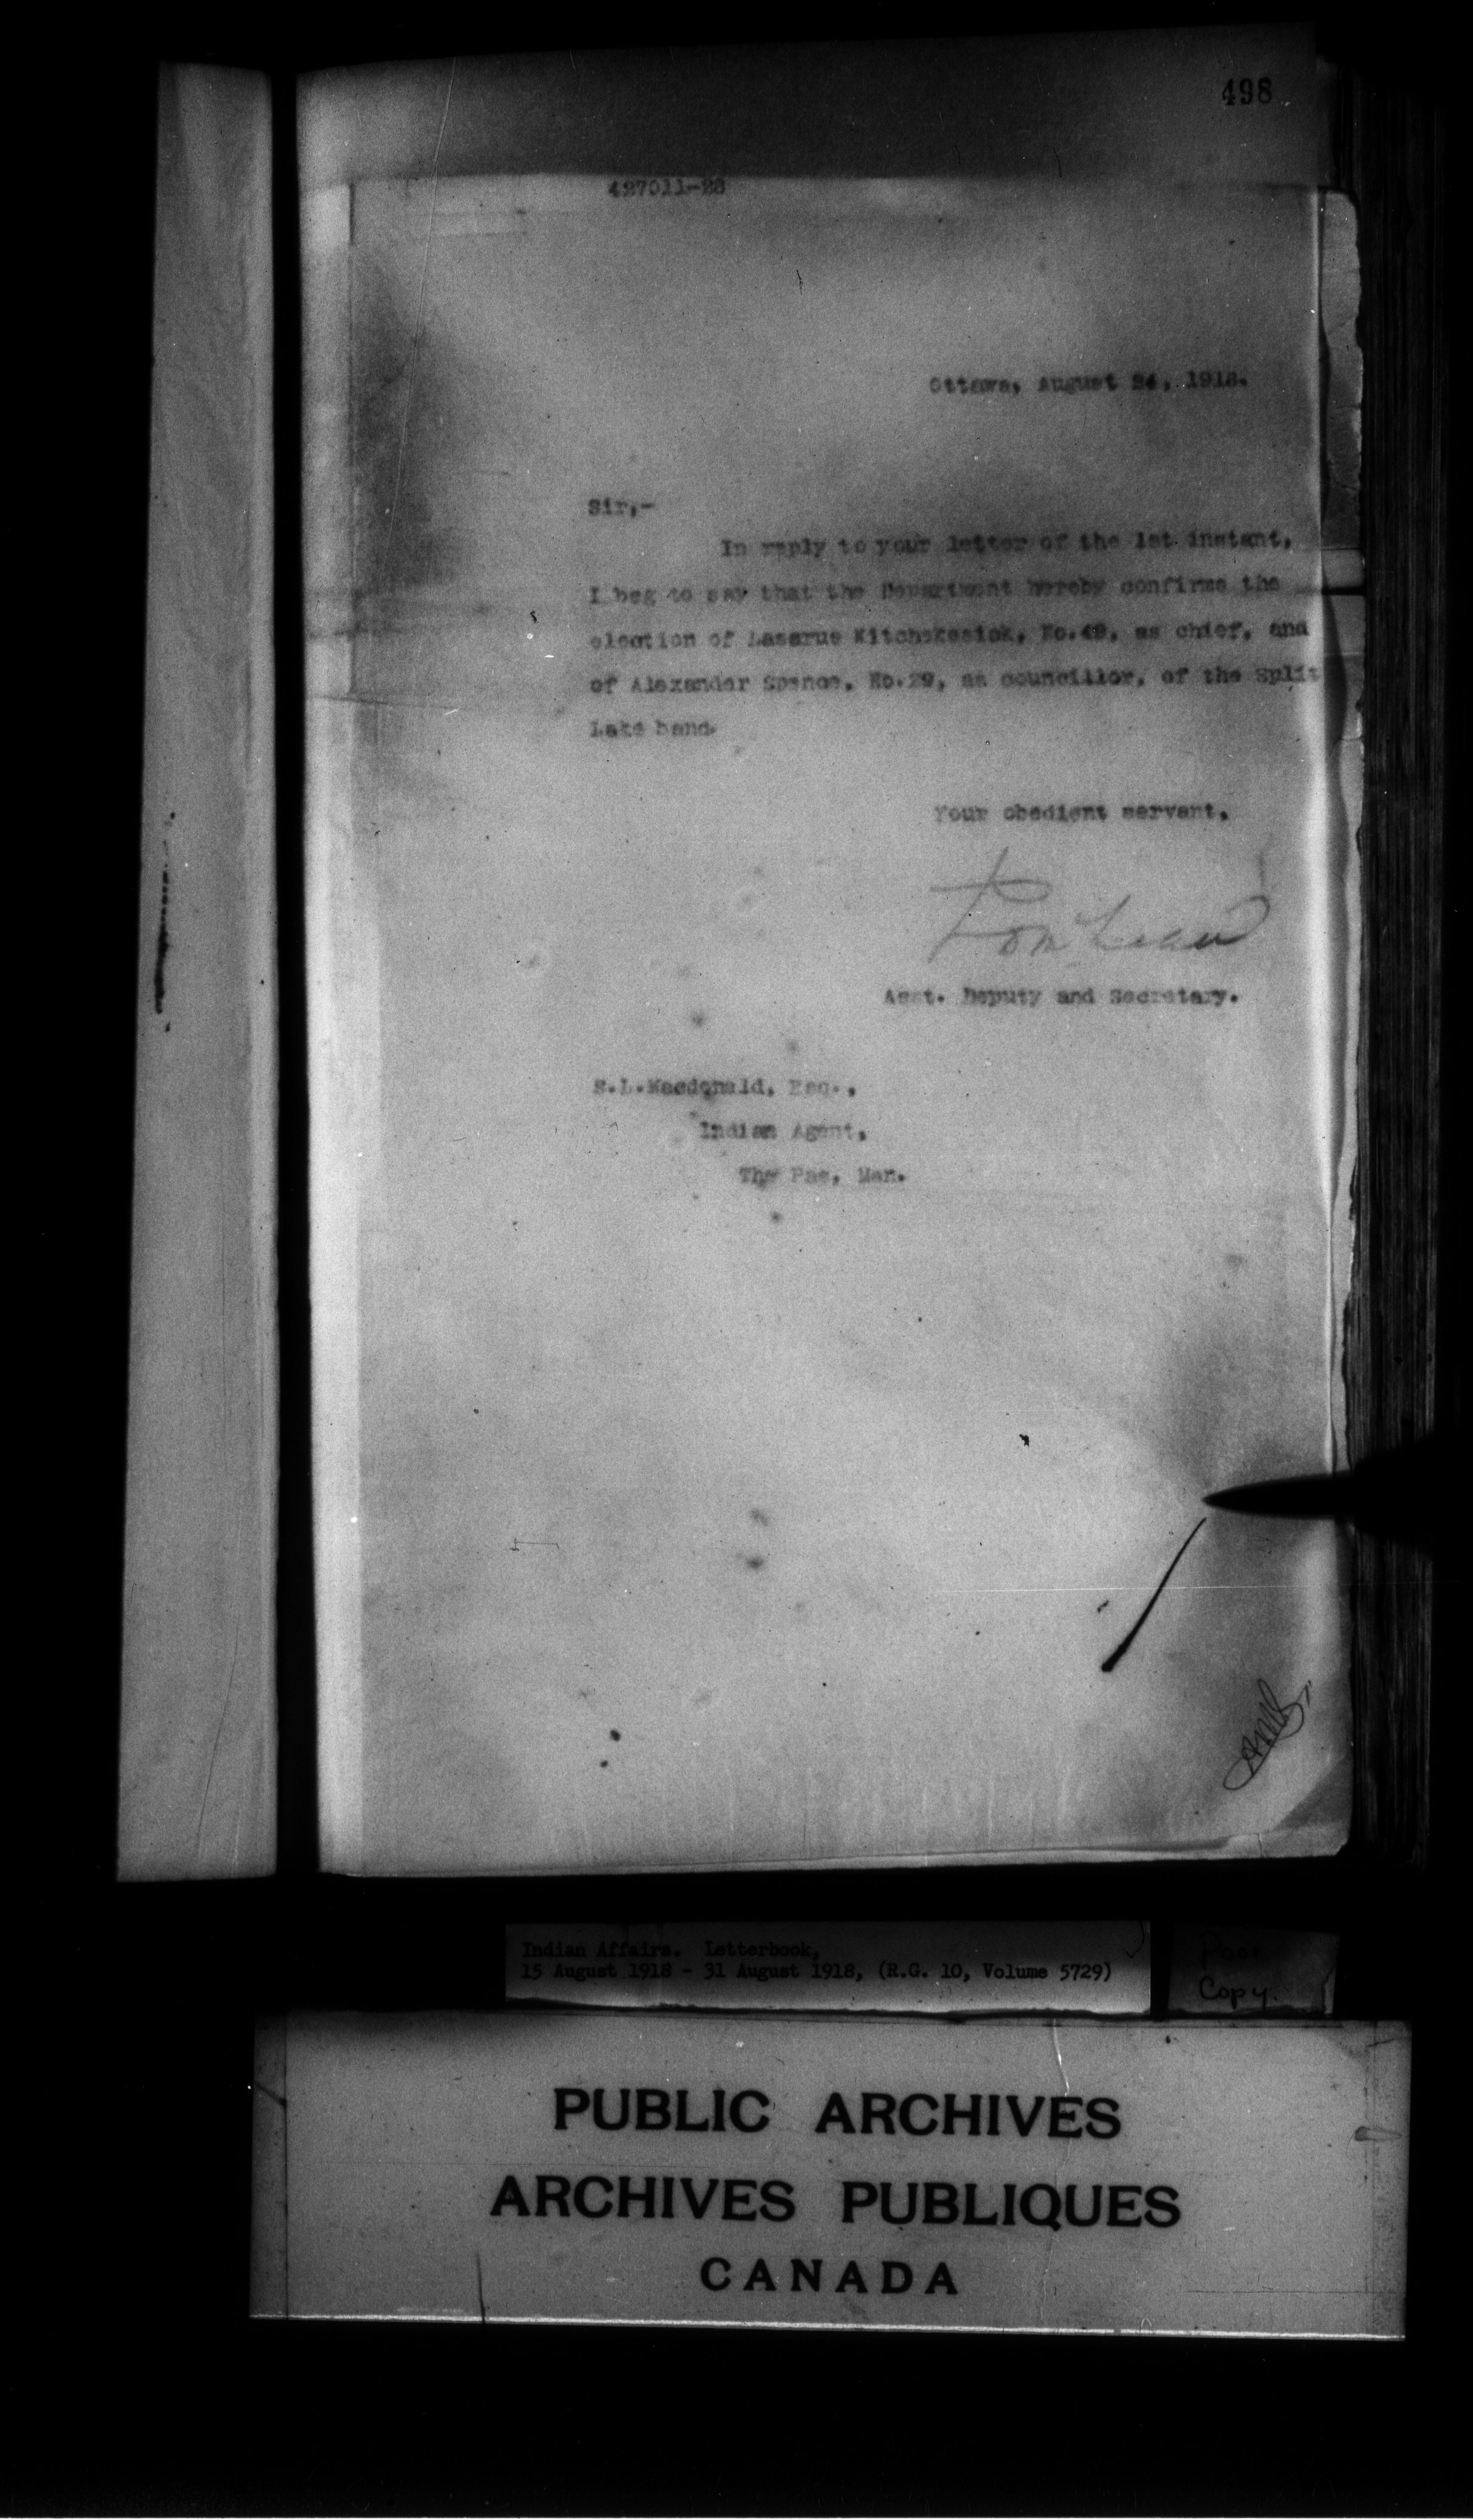 498
427011-28
Ottawa, August 24, 1918.
Sir,-
In reply to your letter of the 1st instant,
I beg to say that the Department hereby confirms the
election of Lazarus Kitchekesick, No.49, as chief, and
of Alexander Spence, No.29, as councillor, of the Split
Lake band.
Your obedient servant,
Asst. Deputy and Secretary.
S.L.Macdonald, Esq.,
Indian Agent,
The Pas, Man.
Indian Affairs. Letterbook,
15 August 1918 - 31 August 1918, (R.G. 10, Volume 5729)
Poor
Copy.
PUBLIC ARCHIVES
ARCHIVES PUBLIQUES
CANADA